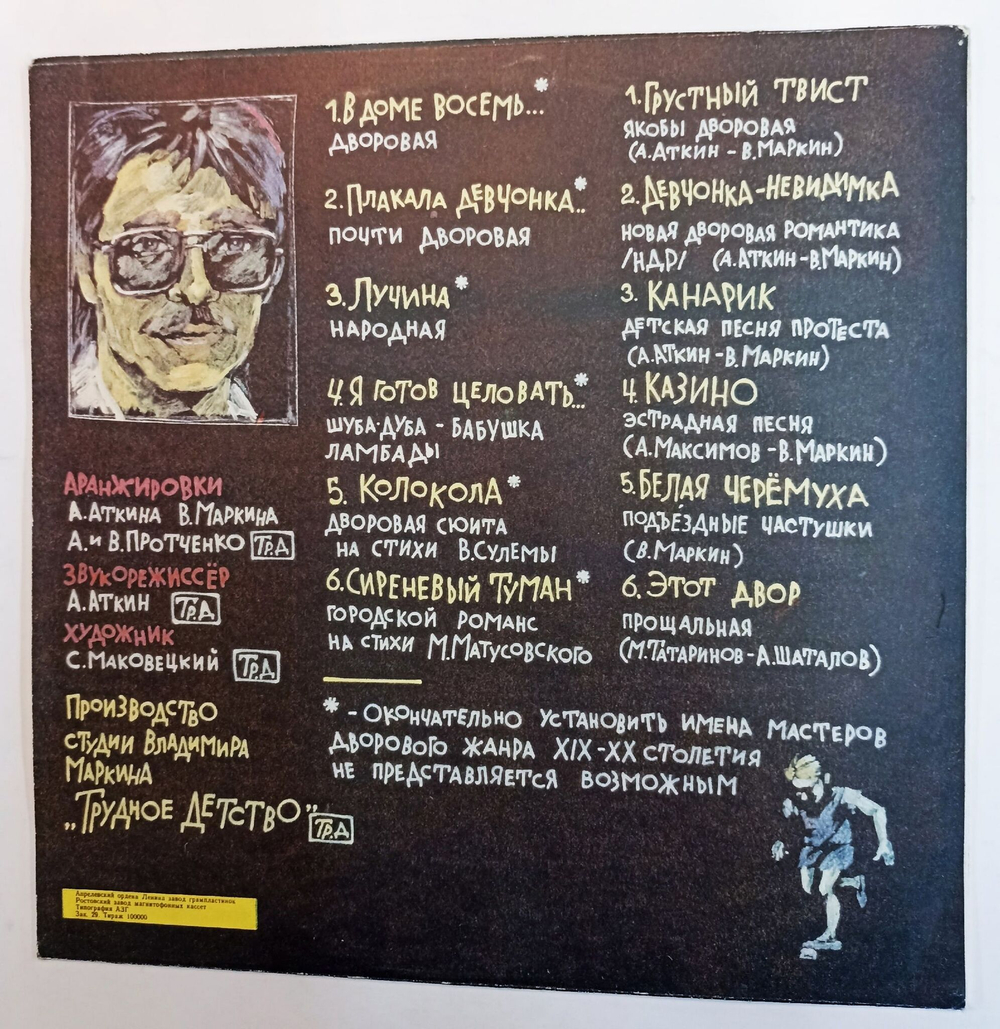 1. В ДОМЕ ВОСЕМЬ...*
ДВОРОВАЯ
2. ПЛАКАЛА ДЕВЧОНКА..*
ПОЧТИ ДВОРОВАЯ
3. ЛУЧИНА*
НАРОДНАЯ
4. Я ГОТОВ ЦЕЛОВАТЬ...*
ШУБА-ДУБА - БАБУШКА
ЛАМБАДЫ
5. КОЛОКОЛА*
ДВОРОВАЯ СЮИТА
НА СТИХИ В.СУЛЕМЫ
6. СИРЕНЕВЫЙ ТУМАН*
ГОРОДСКОЙ РОМАНС
НА СТИХИ М.МАТУСОВСКОГО
1. ГРУСТНЫЙ ТВИСТ
ЯКОБЫ ДВОРОВАЯ
(А.АТКИН - В.МАРКИН)
2. ДЕВЧОНКА-НЕВИДИМКА
НОВАЯ ДВОРОВАЯ РОМАНТИКА
/НДР/ (А.АТКИН-В.МАРКИН)
3. КАНАРИК
ДЕТСКАЯ ПЕСНЯ ПРОТЕСТА
(А.АТКИН - В.МАРКИН)
4. КАЗИНО
ЭСТРАДНАЯ ПЕСНЯ
(А.МАКСИМОВ - В.МАРКИН)
5. БЕЛАЯ ЧЕРЁМУХА
ПОДЪЕЗДНЫЕ ЧАСТУШКИ
(В.МАРКИН)
6. ЭТОТ ДВОР
ПРОЩАЛЬНАЯ
(М.ТАТАРИНОВ-А.ШАТАЛОВ)
* - ОКОНЧАТЕЛЬНО УСТАНОВИТЬ ИМЕНА МАСТЕРОВ
ДВОРОВОГО ЖАНРА XIX-XX СТОЛЕТИЯ
НЕ ПРЕДСТАВЛЯЕТСЯ ВОЗМОЖНЫМ
АРАНЖИРОВКИ
А.АТКИНА В.МАРКИНА
А. и В.ПРОТЧЕНКО ТР.Д
ЗВУКОРЕЖИССЁР
А.АТКИН ТР.Д
ХУДОЖНИК
С.МАКОВЕЦКИЙ ТР.Д
ПРОИЗВОДСТВО
СТУДИИ ВЛАДИМИРА
МАРКИНА
„ТРУДНОЕ ДЕТСТВО" ТР.Д
Апрелевский ордена Ленина завод грампластинок
Ростовский завод магнитофонных кассет
Типография АЗГ
Зак. 29. Тираж 100000